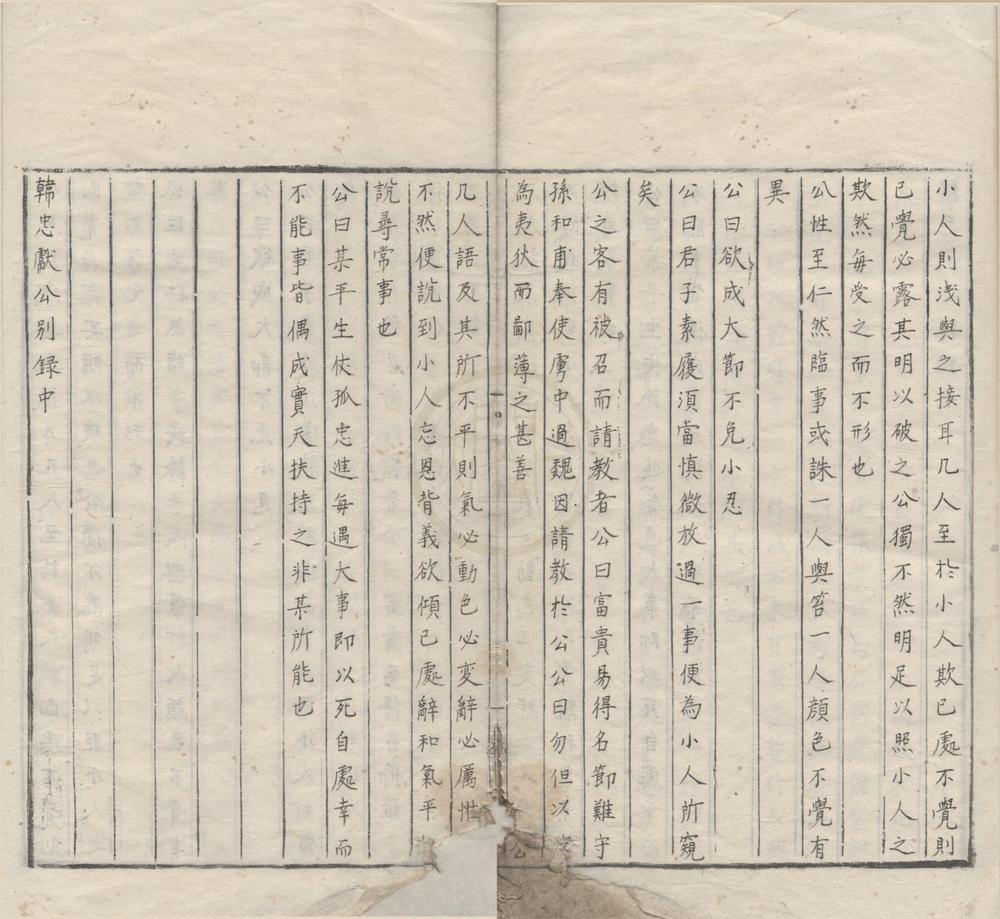 小人則浅與之接耳几人至於小人欺已處不覺則
已覺必露其明以破之公獨不然明足以照小人之
欺然毎受之而不形也
公性至仁然臨事或誅一人與笞一人顔色不覺有
異
公曰欲成大節不免小忍
公曰君子素履湏當慎微放過一事便為小人所窺
矣
公之客有被召而請教者公曰富貴易得名節難守
孫和甫奉使虜中過魏因請教於公公曰勿但以
為夷狄而鄙薄之甚善 公
几人語及其所不平則氣必動色必変辭必厲性
不然便説到小人忘恩背義欲傾已處辭和氣平
説尋常事也
公曰某平生仗孤忠進毎遇大事即以死自處幸而
不能事皆偶成實天扶持之非某所能也
韓忠獻公别録中